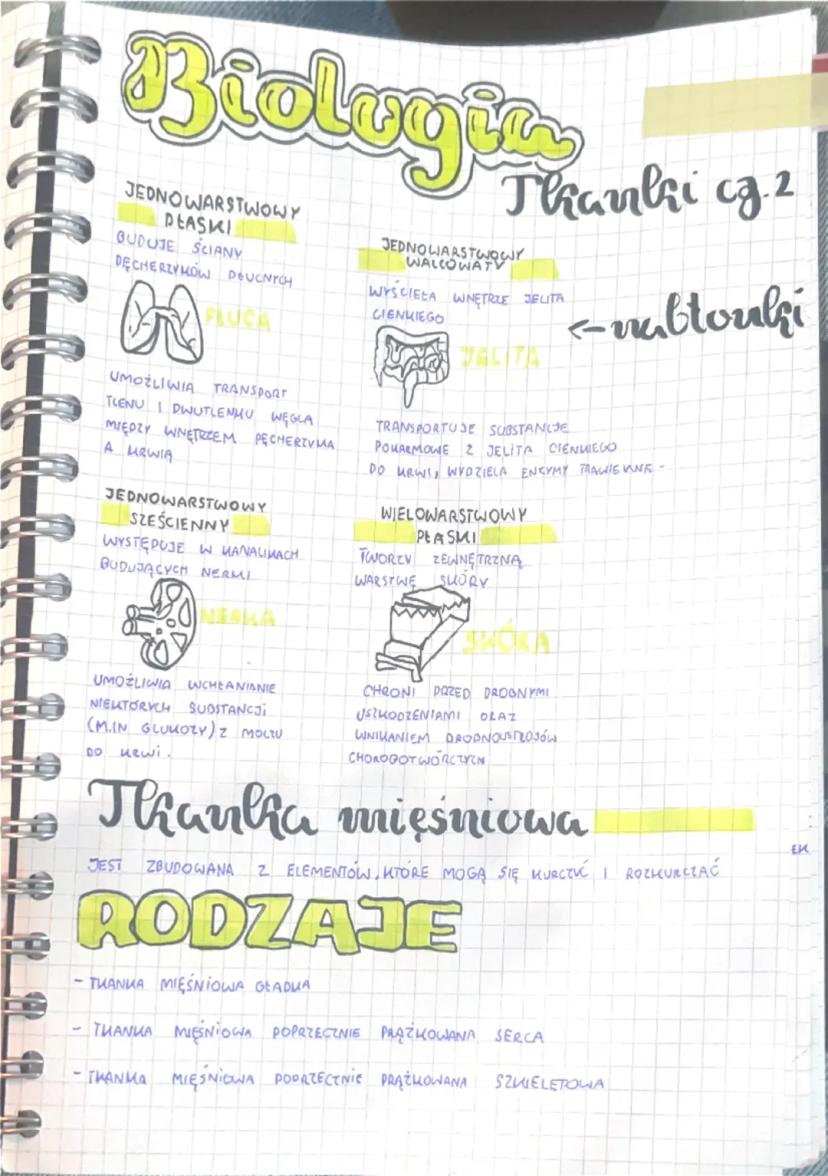 Biologia
Tkanki cz. 2
JEDNOWARSTWOWY
PŁASKI
BUDUJE ŚCIANY
PĘCHERZYKÓW PŁUCNYCH
PŁUCA
UMOŻLIWIA TRANSPORT
TLENU I DWUTLENKU WĘGLA
MIĘDZY WNĘTRZEM PĘCHERZYKA
A KRWIĄ
JEDNOWARSTWOWY
WALCOWATY
WYŚCIEŁA WNĘTRZE JELITA
CIENKIEGO
JELITA
TRANSPORTUJE SUBSTANCJE
POKARMOWE Z JELITA CIENKIEGO
DO KRWI, WYDZIELA ENZYMY TRAWIENNE -
←nabłonki
JEDNOWARSTWOWY
SZEŚCIENNY
WYSTĘPUJE W KANALIKACH
BUDUJĄCYCH NERKI
NERKA
UMOŻLIWIA WCHŁANIANIE
NIEKTÓRYCH SUBSTANCJI
(M.IN GLUKOZY) Z MOCZU
DO KRWI.
WIELOWARSTWOWY
PŁASKI
TWORZY ZEWNĘTRZNĄ
WARSTWĘ SKÓRY
SKÓRA
CHRONI PRZED DROBNYMI
USZKODZENIAMI ORAZ
WNIKANIEM DROBNOUSTROJÓW
CHOROBOTWÓRCZYCH
Tkanka mięśniowa
JEST ZBUDOWANA Z ELEMENTÓW, KTÓRE MOGĄ SIĘ KURCZYĆ I ROZKURCZAĆ
RODZAJE
- TKANKA MIĘŚNIOWA GŁADKA
- TKANKA MIĘŚNIOWA POPRZECZNIE PRĄŻKOWANA SERCA
- TKANKA MIĘŚNIOWA POPRZECZNIE PRĄŻKOWANA SZKIELETOWA